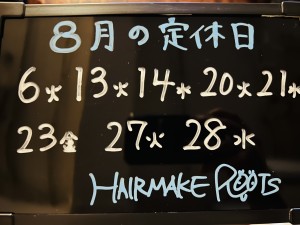 8月の定休日
6火 13火 14水 20火 21水
23金 27火 28水
HAIRMAKE ROOTS